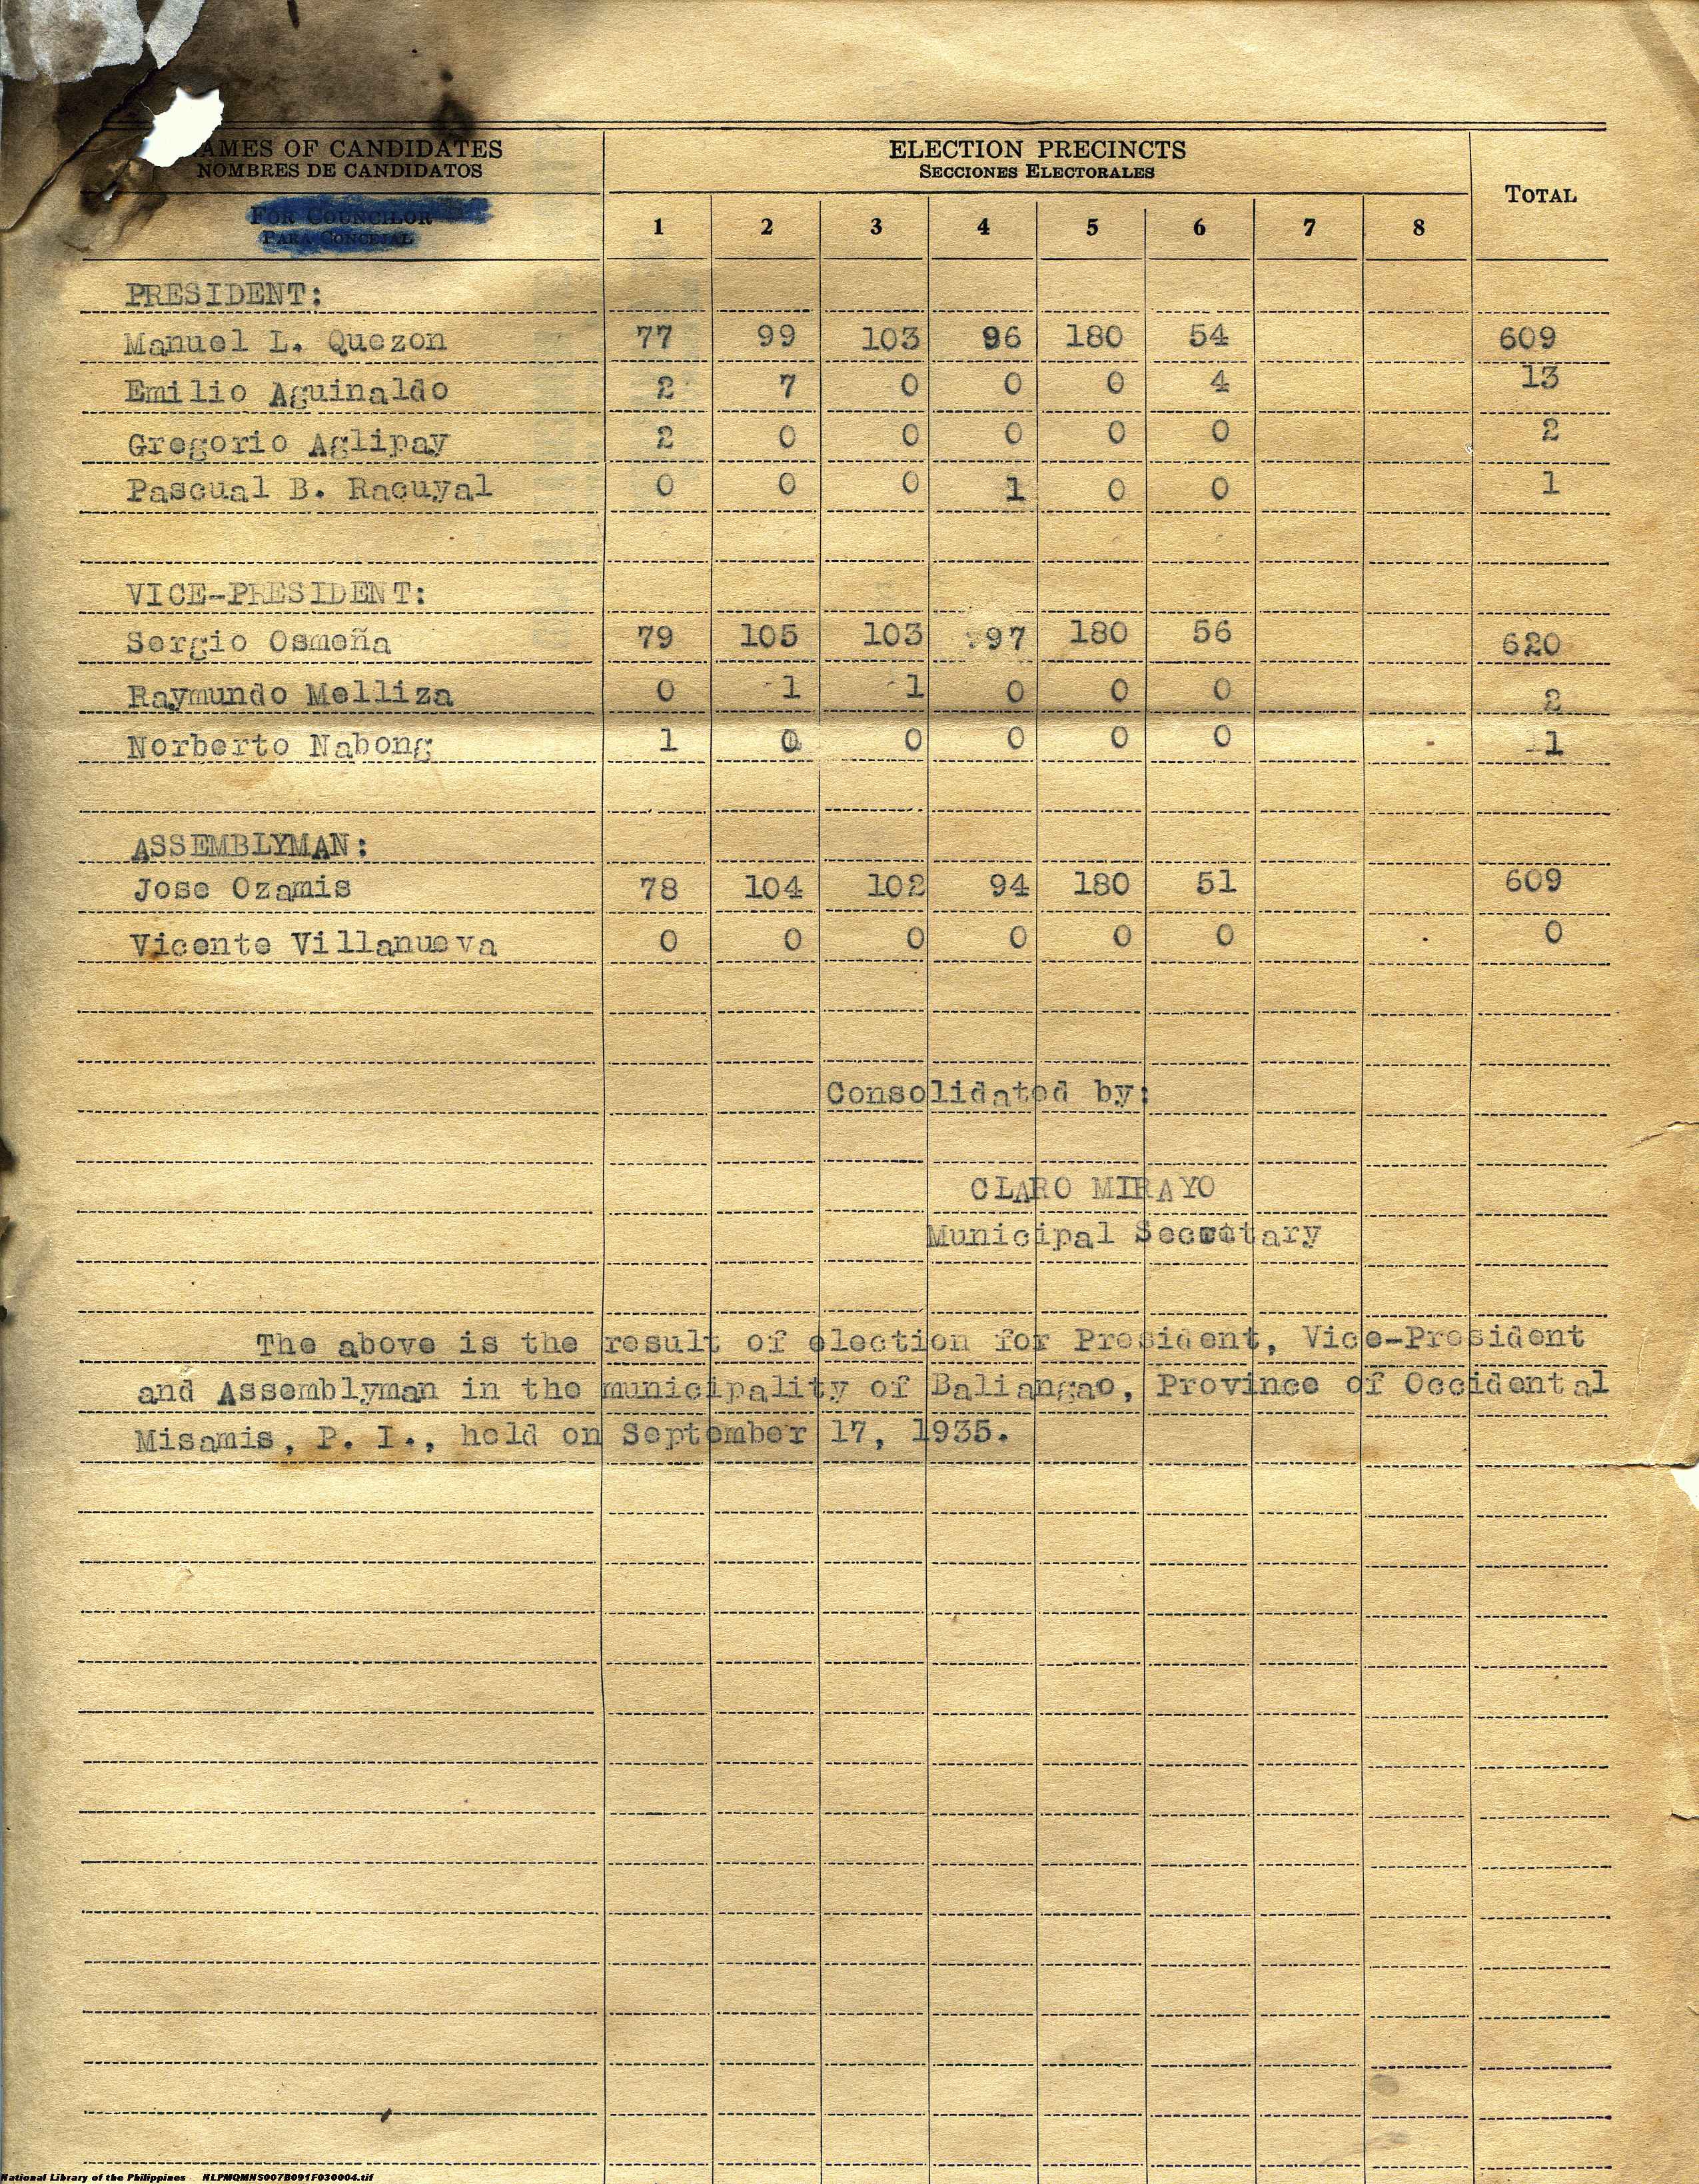 NAMES OF CANDIDATES
NOMBRES DE CANDIDATOS
ELECTION PRECINCTS
SECCIONES ELECTORALES
TOTAL
FOR COUNCILOR
PARA CONCEJAL
1 2 3 4 5 6 7 8
PRESIDENT:
Manuel L. Quezon 77 99 103 96 180 54 609
Emilio Aguinaldo 2 7 0 0 0 4 13
Gregorio Aglipay 2 0 0 0 0 0 2
Pascual B. Racuyal 0 0 0 1 0 0 1
VICE-PRESIDENT:
Sergio Osmeña 79 105 103 97 180 56 620
Raymundo Melliza 0 1 1 0 0 0 2
Norberto Nabong 1 0 0 0 0 0 1
ASSEMBLYMAN:
Jose Ozamis 78 104 102 94 180 51 609
Vicente Villanueva 0 0 0 0 0 0 0
Consolidated by:
CLARO MIRAYO
Municipal Secretary
The above is the result of election for President, Vice-President
and Assemblyman in the municipality of Baliangao, Province of Occidental
Misamis, P. I., held on September 17, 1935.
National Library of the Philippines NLPMQMNS007B091F030004.tif